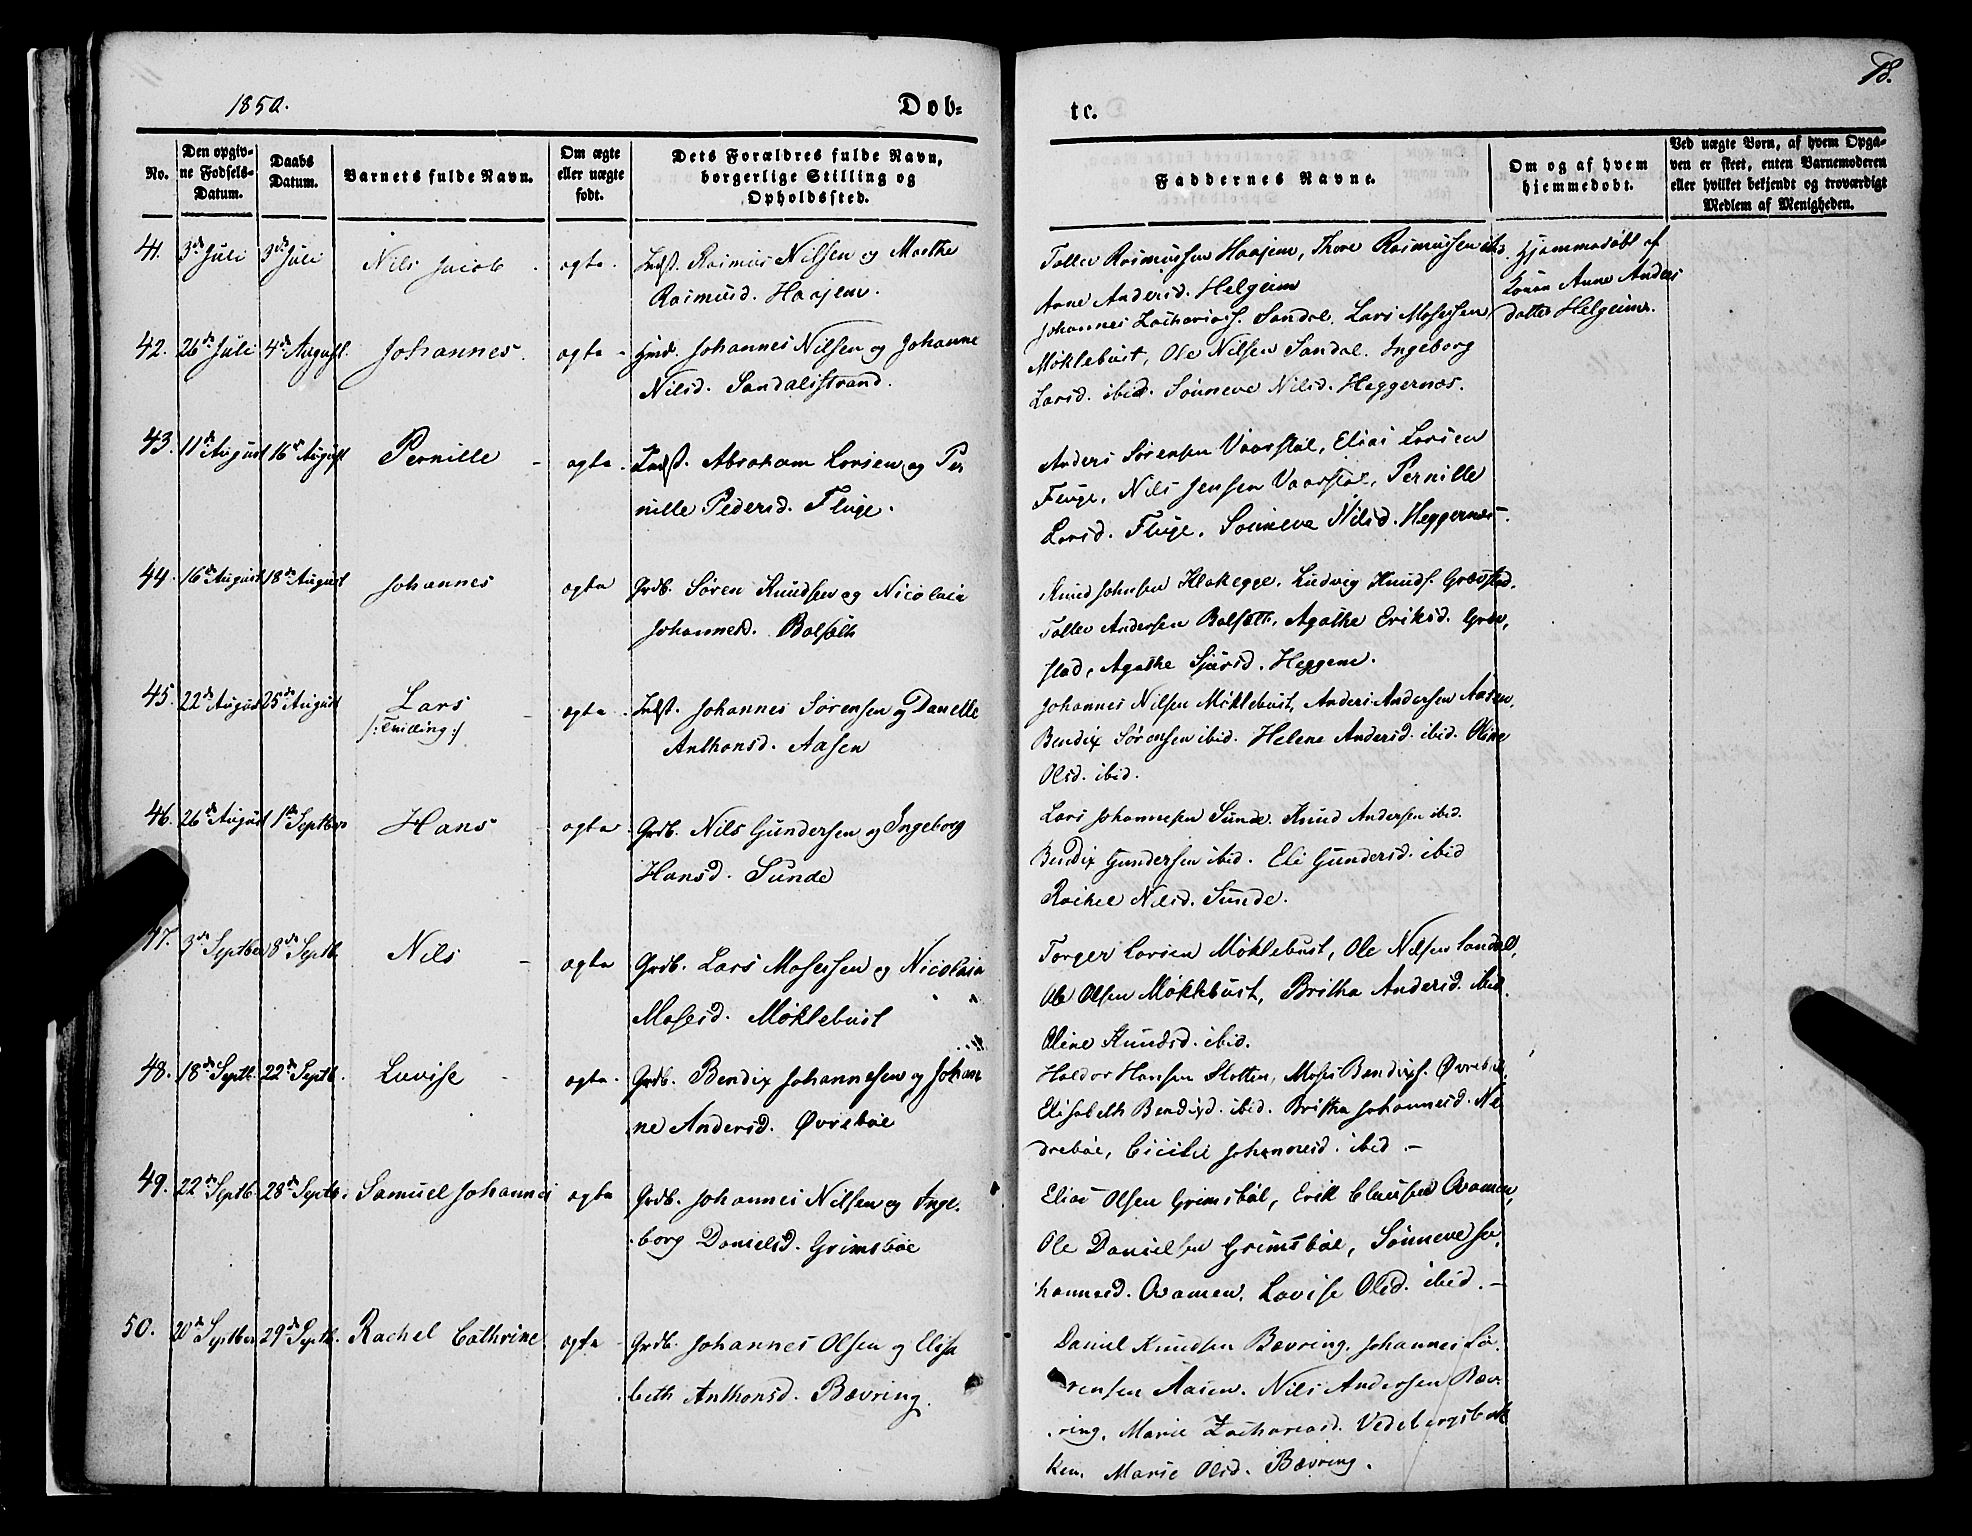 1850.
Døb=
te.
78.
No.
Den opgiv=
ne Fødsels=
Datum.
Daabs
Datum.
Barnets fulde Navn.
Om ægte
eller uægte
født.
Dets Forældres fulde Navn,
borgerlige Stilling og
Opholdssted.
Faddernes Navne.
Om og af hvem
hjemmedøbt.
Ved uægte Børn, af hvem Opga-
ven er skeet, enten Barnemoderen
eller hvilket bekjendt og troværdigt
Medlem af Menigheden.
41. 3de Juli 3de Juli Nils Jacob ægte Indst. Rasmus Nilsen og Marthe
Rasmusd. Haajem.
Tollev Rasmussen Haajem, Thore Rasmussen ibid.
Anne Andersd. Helgeim
Hjemmedøbt af
Konen Anne Anders
datter Helgeim.
42. 26de Juli 4de August Johannes. ægte Hmd. Johannes Nilsen og Johanne
Nilsd. Sandalsstrand.
Johannes Zachariass. Sandal. Lars Mosessen
Møklebust, Ole Nilsen Sandal. Ingeborg
Larsd. ibid. Sønneve Nilsd. Heggernæs.
43. 11de August 16de August Pernille ægte Indst. Abraham Larsen og Per
nille Pedersd. Fluge.
Anders Sørensen Vaarstøl, Elias Larsen
Fluge, Nils Jensen Vaarstøl, Pernille
Larsd. Fluge, Sønneve Nilsd. Heggernæs.
44. 16de August 18de August Johannes ægte Grdb. Søren Knudsen og Nicolaia
Johannesd. Bolsæth
Knud Johnsen Klakegge, Ludvig Knuds. Grøvstad,
Tollev Andersen Bolsæth, Agathe Eriksd. Grøv,
stad, Agathe Sjursd. Heggene.
45. 22de August 25de August Lars
/:Tvilling:/
ægte Indst. Johannes Sørensen og Danelle
Anthonsd. Aasen
Johannes Nilsen Møklebust, Anders Andersen Aasen,
Bendix Sørensen ibid. Helene Andersd. ibid. Oline
Olsd. ibid.
46. 26de August 1ste Septber Hans ægte Grdb. Nils Gundersen og Ingeborg
Hansd. Sunde
Lars Johannesen Sunde. Knud Andersen ibid.
Bendix Gundersen ibid. Eli Gundersd. ibid
Rachel Nilsd. Sunde.
47. 3de Septber 8de Septb. Nils ægte Grdb. Lars Mosessen og Nicolaia
Mosesd. Møklebust
Torger Larsen Møklebust, Ole Nilsen Sandal,
Ole Olsen Møklebust, Britha Andersd. ibid.
Oline Knudsd. ibid.
48. 18de Septb. 22de Septb. Lovise ægte Grdb. Bendix Johannesen og Johan
ne Andersd. Øvrebøe
Haldor Hansen Slotten, Moses Bendixs. Øvrebøe,
Elisabeth Bendixd. ibid. Britha Johannesd. Ne
drebøe, Cicilie Johannesd. ibid.
49. 22de Septb. 28de Septb. Samuel Johannes ægte Grdb. Johannes Nilsen og Inge-
borg Danielsd. Grimsbøe
Elias Olsen Grimsbøe, Erik Clausen Aamen,
Ole Danielsen Grimsbøe, Sønneve Jo,
hannesd. Aamen, Lovise Olsd. ibid.
50. 20de Septber 29de Septb. Rachel Cathrine ægte Grdb. Johannes Olsen og Elisa
beth Anthonsd. Bævring.
Daniel Knudsen Bævring, Johannes Sø-
rensen Aasen, Nils Andersen Bæv-
ring, Marie Zachariasd. Vedebergsbak
ken, Marie Olsd. Bævring.